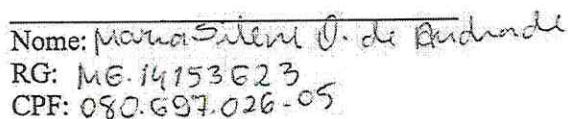 Nome: Maria Silene O. de Andrade
RG: MG.14153623
CPF: 080.697.026-05